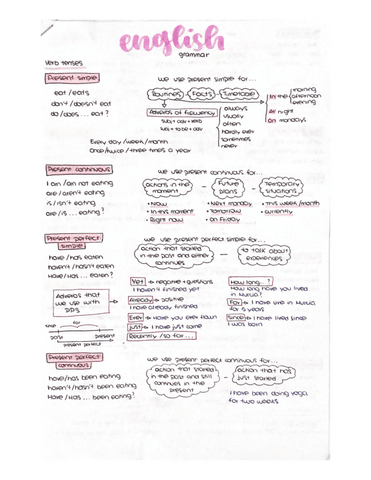 english
grammar
Verb tenses
Present simple
we use present simple for...
eat / eats
don't / doesn't eat
do / does ... eat?
Routines - Facts - Timetable
In the morning
afternoon
evening
At night
On mondays
Adverbs of frequency
subj + adv + verb
subj + to be + adv
always
usually
often
hardly ever
sometimes
never
Every day / week / month
Once / twice / three times a year
Present continuous
we use present continuous for...
I am / am not eating
are / aren't eating
is / isn't eating
are / is ... eating?
actions in the moment
Future plans
Temporary situations
• Now
• In this moment
• Right now
• Next monday
• Tomorrow
• on Friday
• This week / month
• currently
Present perfect simple
we use present perfect simple for...
have / has eaten
haven't / hasn't eaten
Have / Has ... eaten?
action that started in the past and either continues
to talk about experiences
Adverbs that we use with
time
past
present
present perfect
Yet → negative + questions
I haven't finished yet
Already → positive
I have already finished
Ever → Have you ever been
Just → I have just come
Recently / so far...
How long...?
How long have you lived in Murcia?
For → I have live in Murcia for 5 years
Since → I have lived since I was born
Present perfect continuous
we use present perfect continuous for...
have / has been eating
haven't / hasn't been eating
Have / Has ... been eating?
action that started in the past and still continues in the present
action that has just started
I have been doing yoga for two weeks